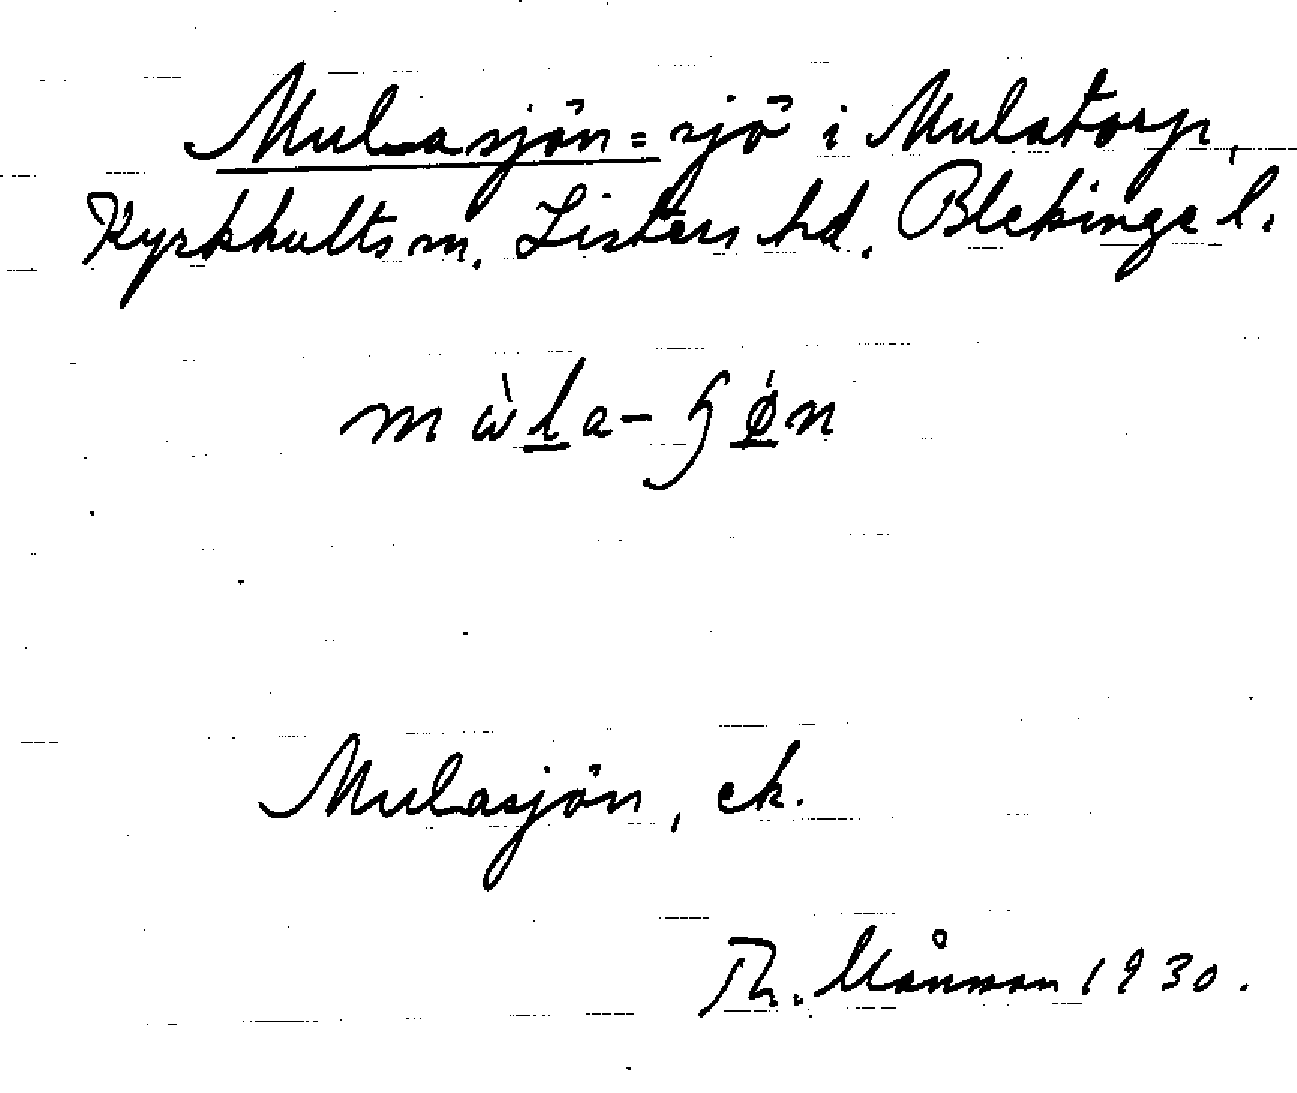 Mulasjön = sjö i Mulatorp,
Kyrkhults sn. Listers hd. Blekinge l.
Mulasjön, ek.
Th. Månsson 1930.